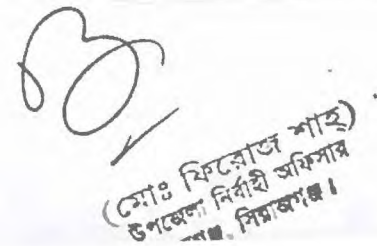 (মোঃ ফিরোজ শাহ্)
উপজেলা নির্বাহী অফিসার
সিরাজগঞ্জ।